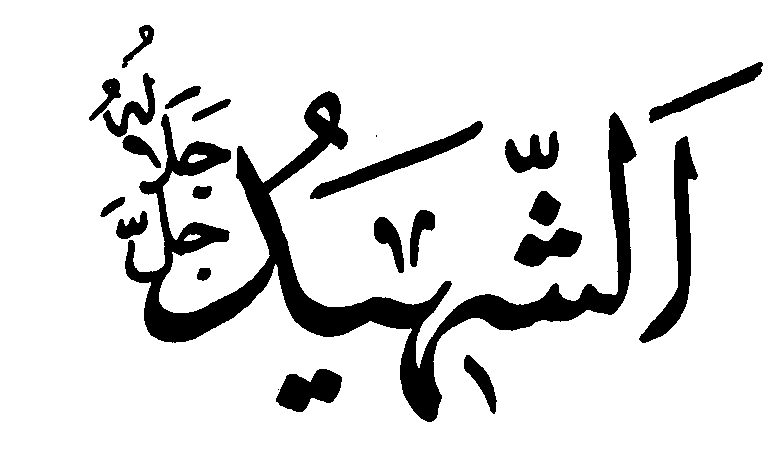 اَلشَّهِيدُ جَلَّ جَلَالُهُ